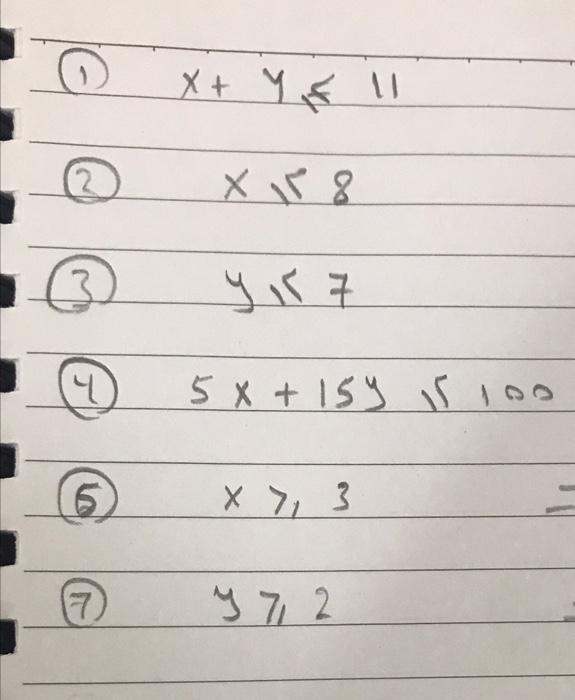 ① x + y ≤ 11
② x ≤ 8
③ y ≤ 7
④ 5x + 15y ≤ 100
⑥ x ≥ 3 =
⑦ y ≥ 2